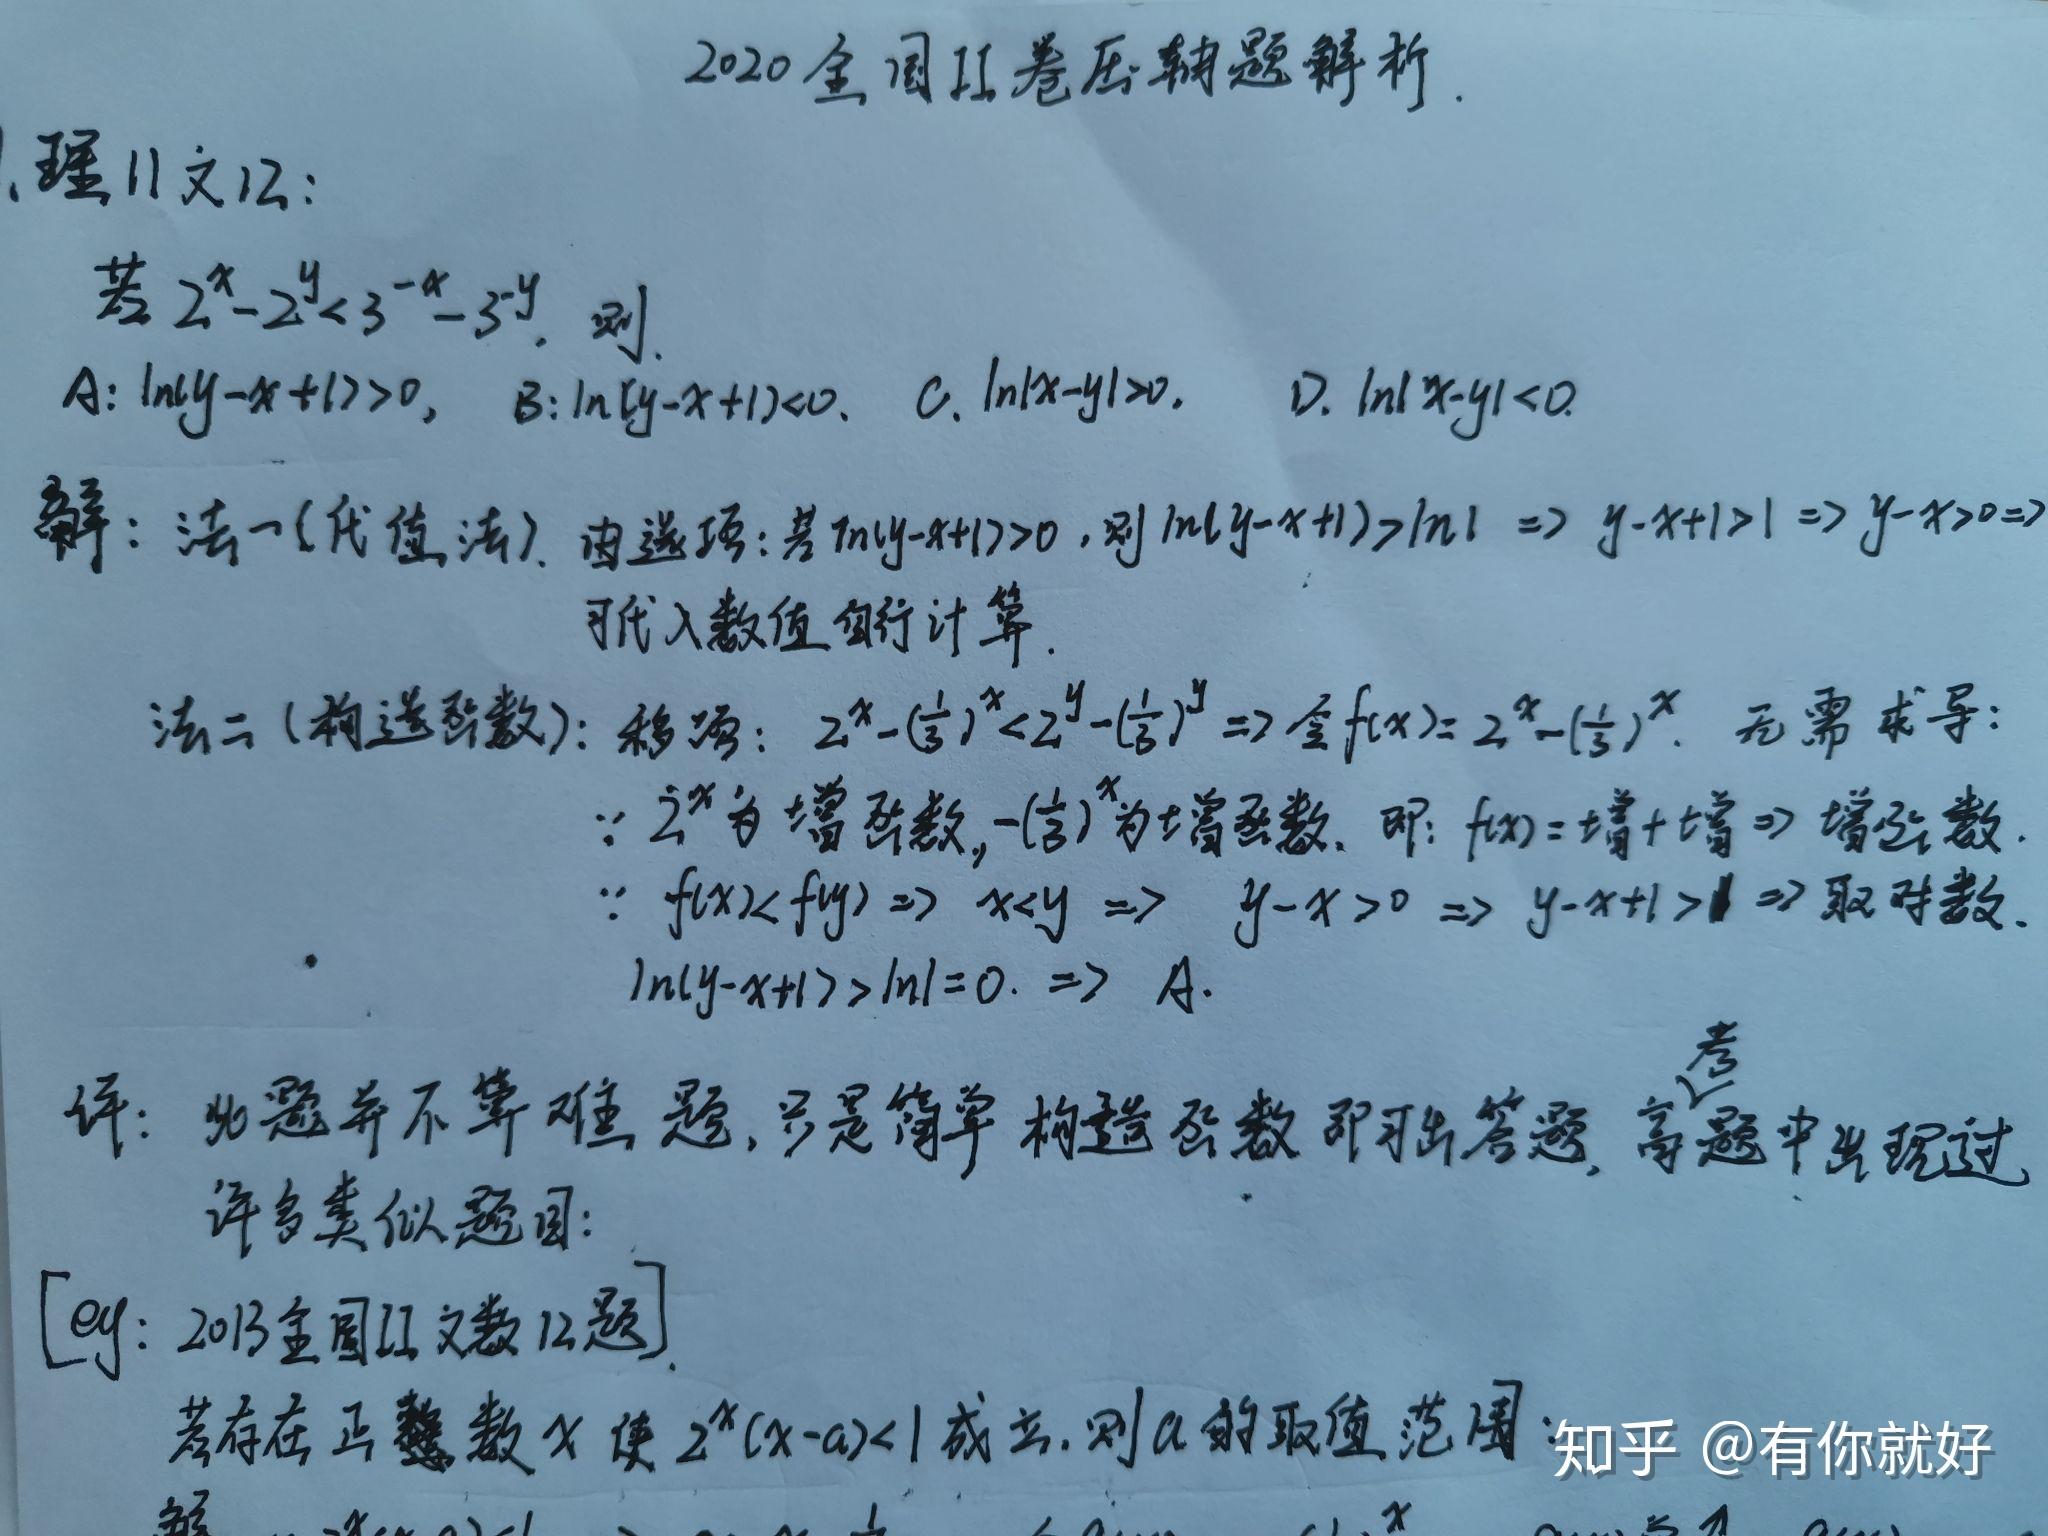 2020全国II卷压轴题解析.
1.理11文12:
若 2^x-2^y<3^-x-3^-y. 则.
A: ln(y-x+1)>0, B: ln(y-x+1)<0. C. ln|x-y|>0. D. ln|x-y|<0.
解: 法一(代值法). 由选项: 若ln(y-x+1)>0, 则ln(y-x+1)>ln1 => y-x+1>1 => y-x>0 =>
可代入数值自行计算.
法二(构造函数): 移项: 2^x-(1/3)^x<2^y-(1/3)^y => 令f(x)=2^x-(1/3)^x. 无需求导:
∵ 2^x为增函数, -(1/3)^x为增函数. 即: f(x)=增+增 => 增函数.
∵ f(x)<f(y) => x<y => y-x>0 => y-x+1>1 => 取对数.
ln(y-x+1)>ln1=0. => A.
评: 此题并不算难题, 只是简单构造函数即可出答题. 高考题中出现过
许多类似题目:
[eg: 2013全国II文数12题].
若存在正数x使2^x(x-a)<1成立. 则a的取值范围:
知乎 @有你就好
解